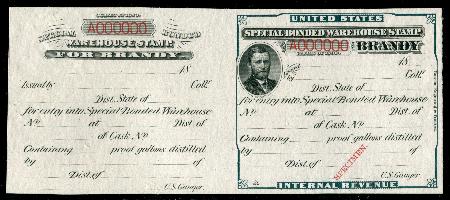 SERIES OF 1878
A000000
SPECIAL BONDED
WAREHOUSE STAMP
FOR BRANDY
18
Issued by Coll.
Dist. State of
for entry into Special Bonded Warehouse
No. at Dist of
of Cask No.
Containing proof gallons distilled
by of
Dist. of
U.S. Gauger.
UNITED STATES
SPECIAL BONDED WAREHOUSE STAMP
FOR A000000 BRANDY
18
Coll.
Dist. State of
for entry into Special Bonded Warehouse
No. at Dist of
of Cask No.
Containing proof gallons distilled
by of
Dist. of
SPECIMEN.
U.S. Gauger.
INTERNAL REVENUE